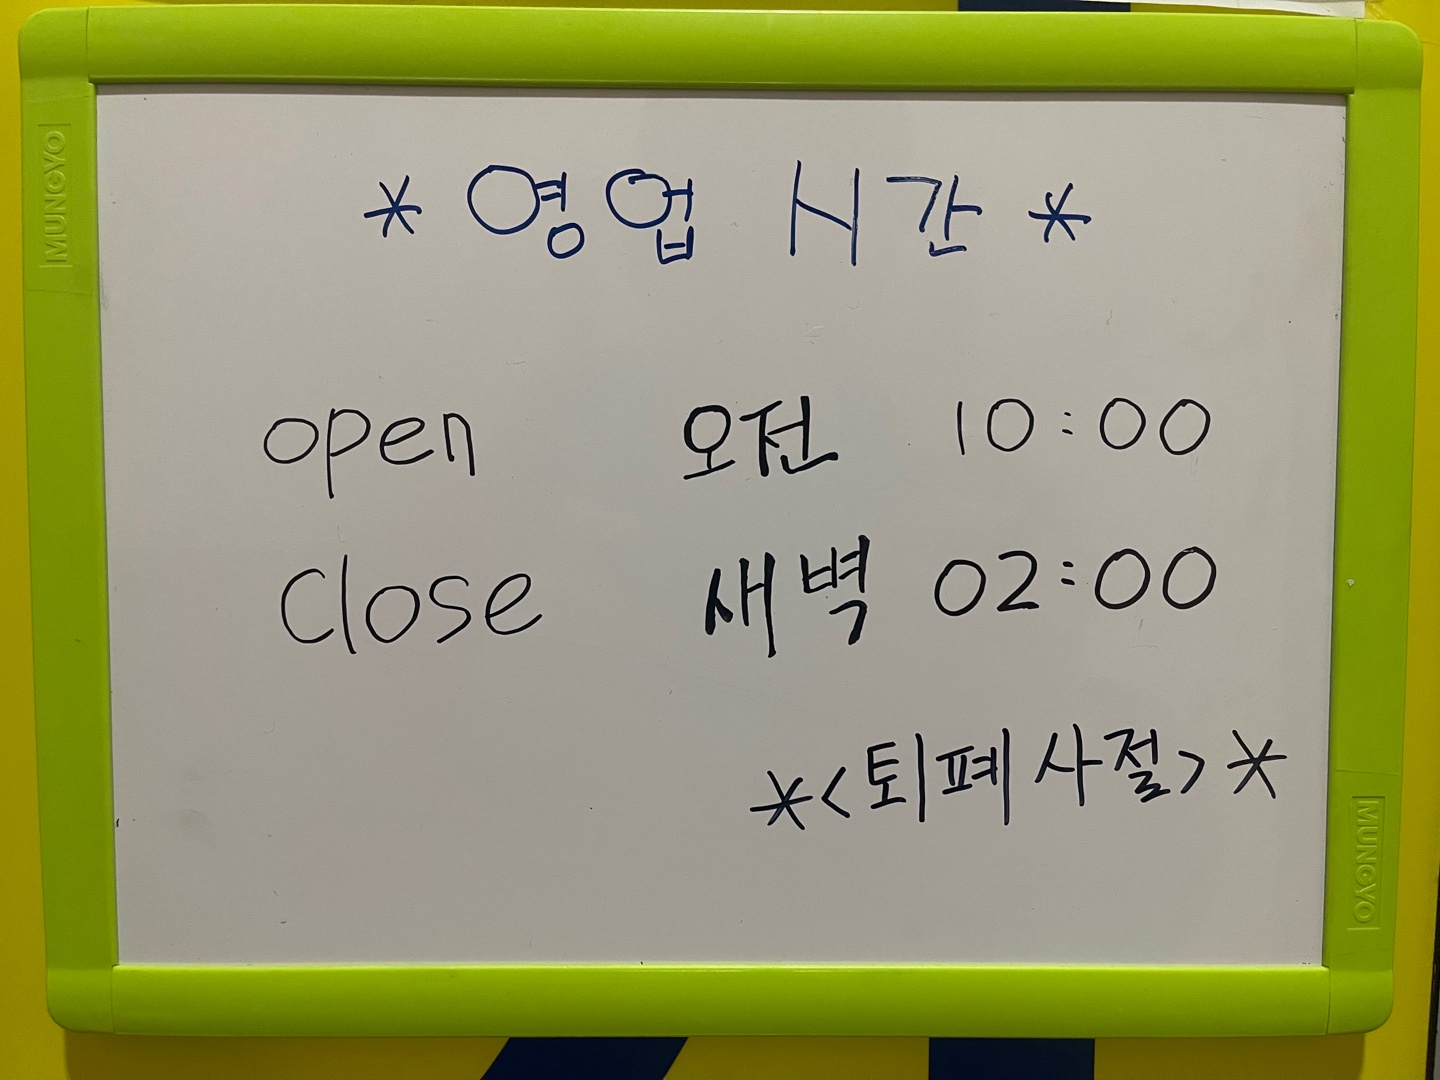 * 영업 시간 *
open 오전 10:00
close 새벽 02:00
*<퇴폐 사절>*
MUNGYO
MUNGYO